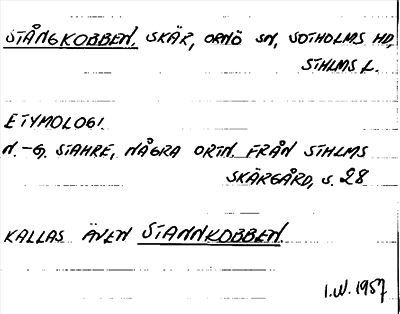 STÅNGKOBBEN, SKÄR, ORNÖ SN, SOTHOLMS HD,
STHLMS L.
ETYMOLOGI.
N.-G. STAHRE, NÅGRA ORTN. FRÅN STHLMS
SKÄRGÅRD, S. 28
KALLAS ÄVEN STANNKOBBEN.
I.W. 1957